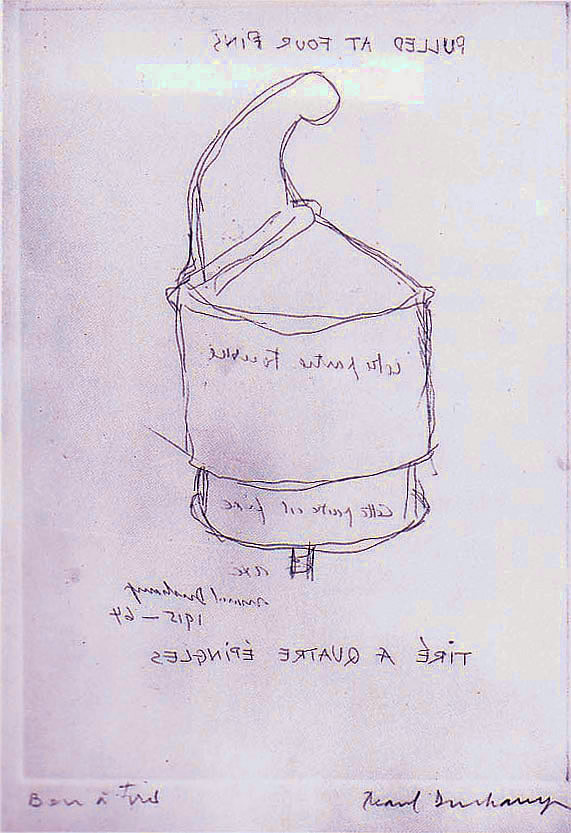 PULLED AT FOUR PINS
cette partie tourne
Cette partie est fixe
axe
Marcel Duchamp
1915 – 64
TIRÉ A QUATRE ÉPINGLES
Bon à tirer
Marcel Duchamp